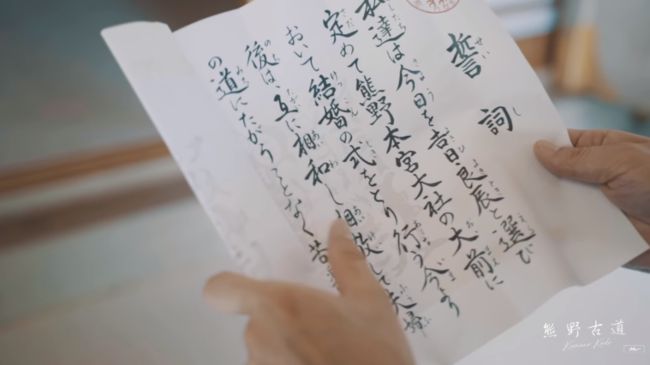 誓詞
せいし
私達は今日を吉日良辰と選び
定めて熊野本宮大社の大前に
おいて結婚の式をとり行う今より
後は、互に相和し相敬して夫婦
の道にたがうことなく苦
熊野古道
Kumano Kodo